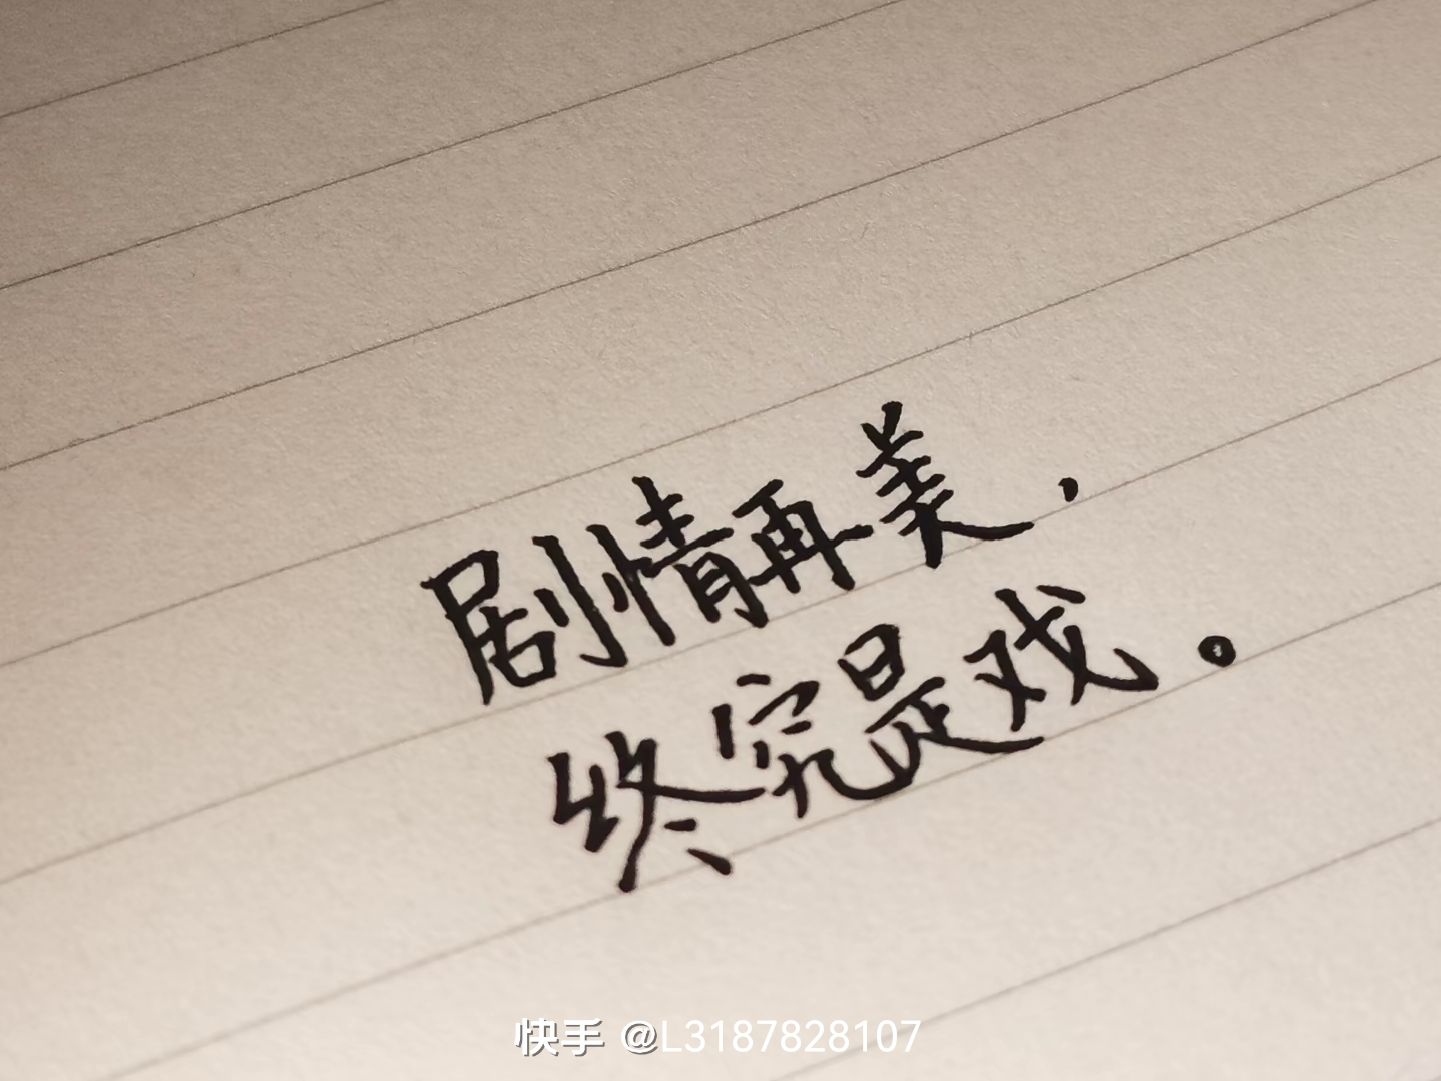 剧情再美，
终究是戏。
快手 @L3187828107